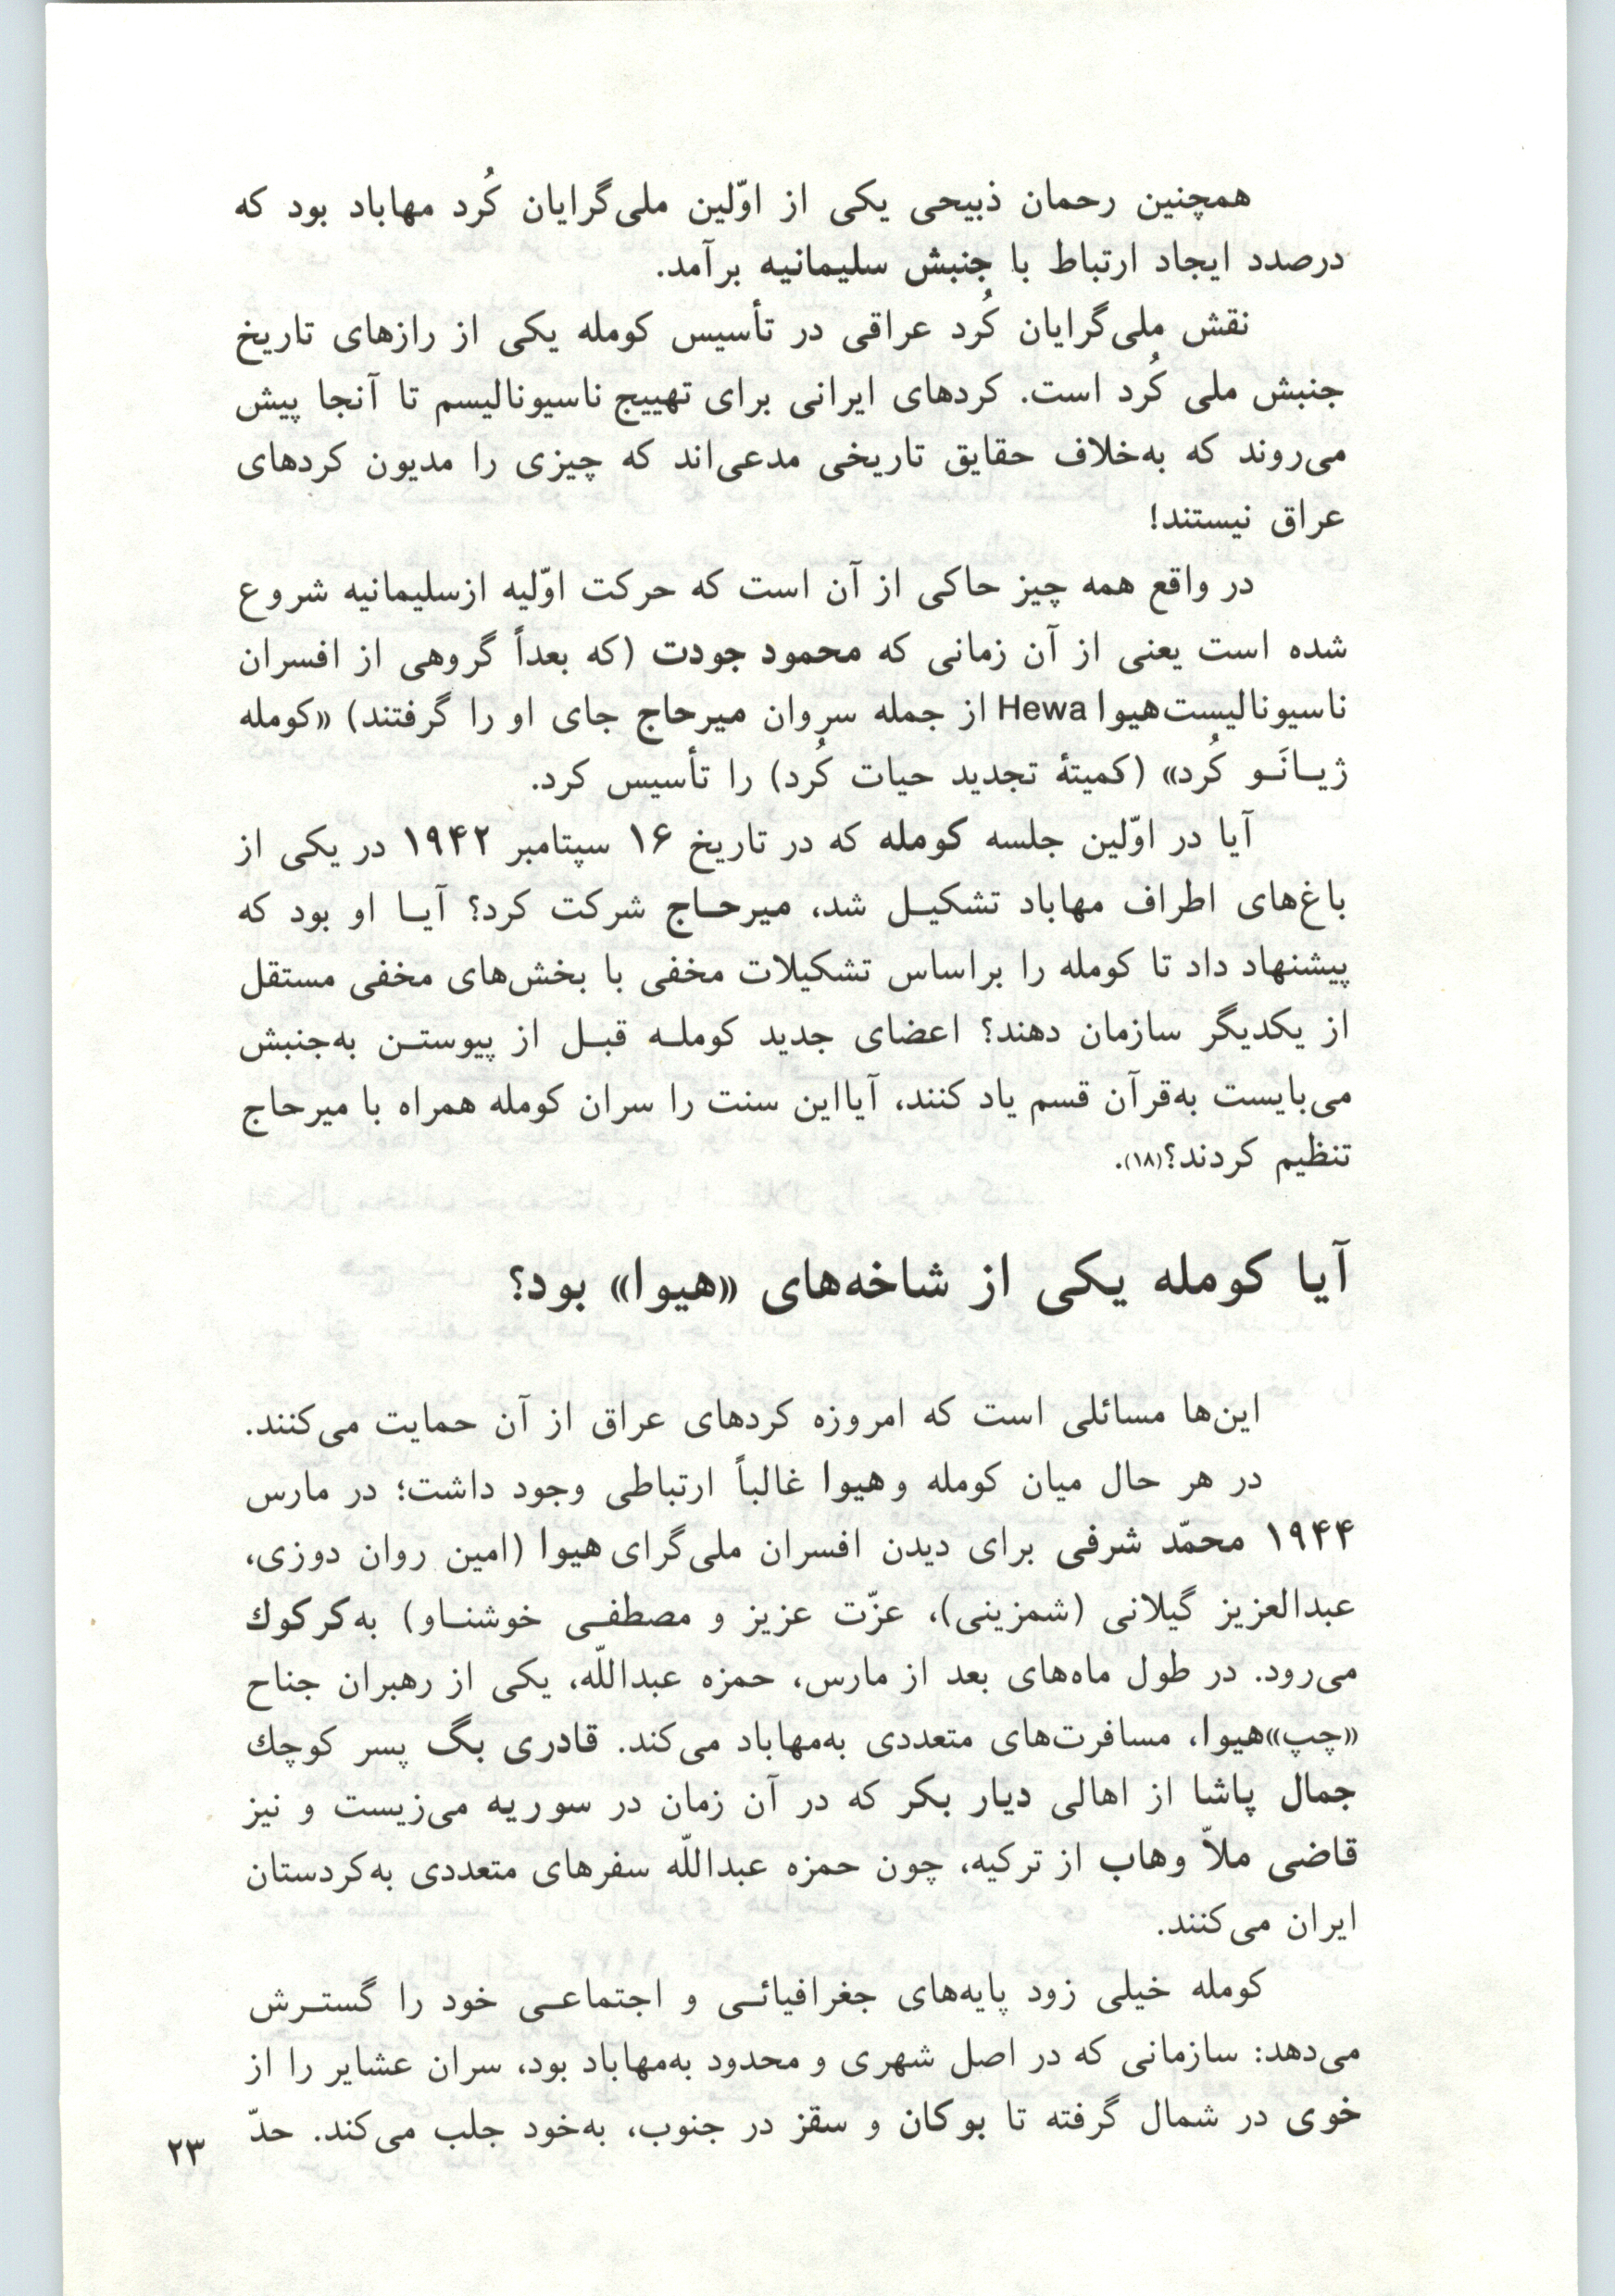 همچنین رحمان ذبیحی یکی از اوّلین ملی‌گرایان کُرد مهاباد بود که
درصدد ایجاد ارتباط با جنبش سلیمانیه برآمد.
نقش ملی‌گرایان کُرد عراقی در تأسیس کومله یکی از رازهای تاریخ
جنبش ملی کُرد است. کردهای ایرانی برای تهییج ناسیونالیسم تا آنجا پیش
می‌روند که به‌خلاف حقایق تاریخی مدعی‌اند که چیزی را مدیون کردهای
عراق نیستند!
در واقع همه چیز حاکی از آن است که حرکت اوّلیه ازسلیمانیه شروع
شده است یعنی از آن زمانی که محمود جودت (که بعداً گروهی از افسران
ناسیونالیست‌هیوا Hewa از جمله سروان میرحاج جای او را گرفتند) «کومله
ژیـانَـو کُرد» (کمیتهٔ تجدید حیات کُرد) را تأسیس کرد.
آیا در اوّلین جلسه کومله که در تاریخ ۱۶ سپتامبر ۱۹۴۲ در یکی از
باغ‌های اطراف مهاباد تشکیـل شد، میرحـاج شرکت کرد؟ آیـا او بود که
پیشنهاد داد تا کومله را براساس تشکیلات مخفی با بخش‌های مخفی مستقل
از یکدیگر سازمان دهند؟ اعضای جدید کوملـه قبـل از پیوستـن به‌جنبش
می‌بایست به‌قرآن قسم یاد کنند، آیااین سنت را سران کومله همراه با میرحاج
تنظیم کردند؟(۱۸).
آیا کومله یکی از شاخه‌های «هیوا» بود؟
این‌ها مسائلی است که امروزه کردهای عراق از آن حمایت می‌کنند.
در هر حال میان کومله و هیوا غالباً ارتباطی وجود داشت؛ در مارس
۱۹۴۴ محمّد شرفی برای دیدن افسران ملی‌گرای هیوا (امین روان دوزی،
عبدالعزیز گیلانی (شمزینی)، عزّت عزیز و مصطفـی خوشنـاو) به‌کرکوك
می‌رود. در طول ماه‌های بعد از مارس، حمزه عبداللّه، یکی از رهبران جناح
«چپ»هیوا، مسافرت‌های متعددی به‌مهاباد می‌کند. قادری بگ پسر کوچك
جمال پاشا از اهالی دیار بکر که در آن زمان در سوریه می‌زیست و نیز
قاضی ملاّ وهاب از ترکیه، چون حمزه عبداللّه سفرهای متعددی به‌کردستان
ایران می‌کنند.
کومله خیلی زود پایه‌های جغرافیائـی و اجتماعـی خود را گستـرش
می‌دهد: سازمانی که در اصل شهری و محدود به‌مهاباد بود، سران عشایر را از
خوی در شمال گرفته تا بوکان و سقز در جنوب، به‌خود جلب می‌کند. حدّ
۲۳